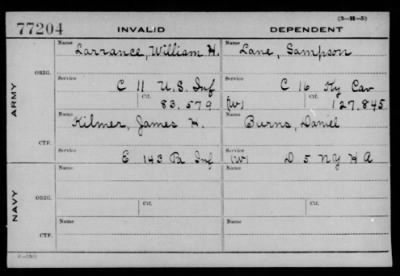 77204 INVALID DEPENDENT (3—14—5)
Name Larrance, William H. Name Lane, Sampson
ORIG.
Service C 11 U. S. Inf Service C 16 Ky Cav
Ctf. 83,579 (W) Ctf. 127,845
ARMY
Name Kilmer, James H. Name Burns, Daniel
CTF.
Service E 143 Pa Inf Service (W) D 5 N Y H A
Name Name
ORIG.
Service Ctf. Service Ctf.
NAVY
Name Name
CTF.
Service Service